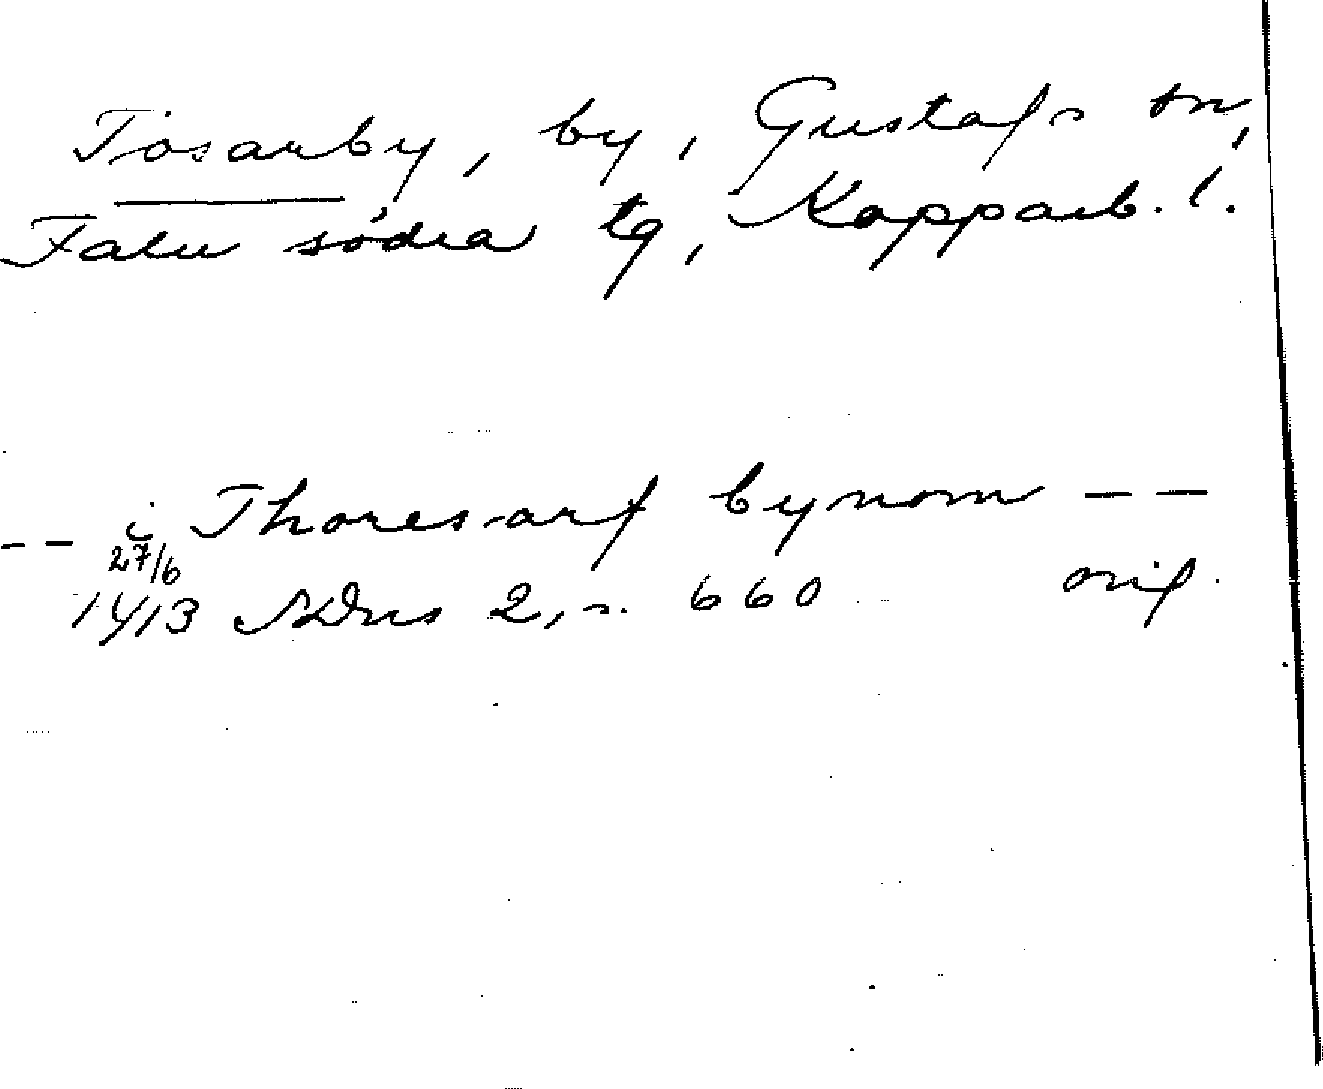 Tosarby, by, Gustafs sn,
Falu södra tg, Kopparb. l.
-- i Thoresarf bynom --
27/6
1413 SDns 2, s. 660 orig.